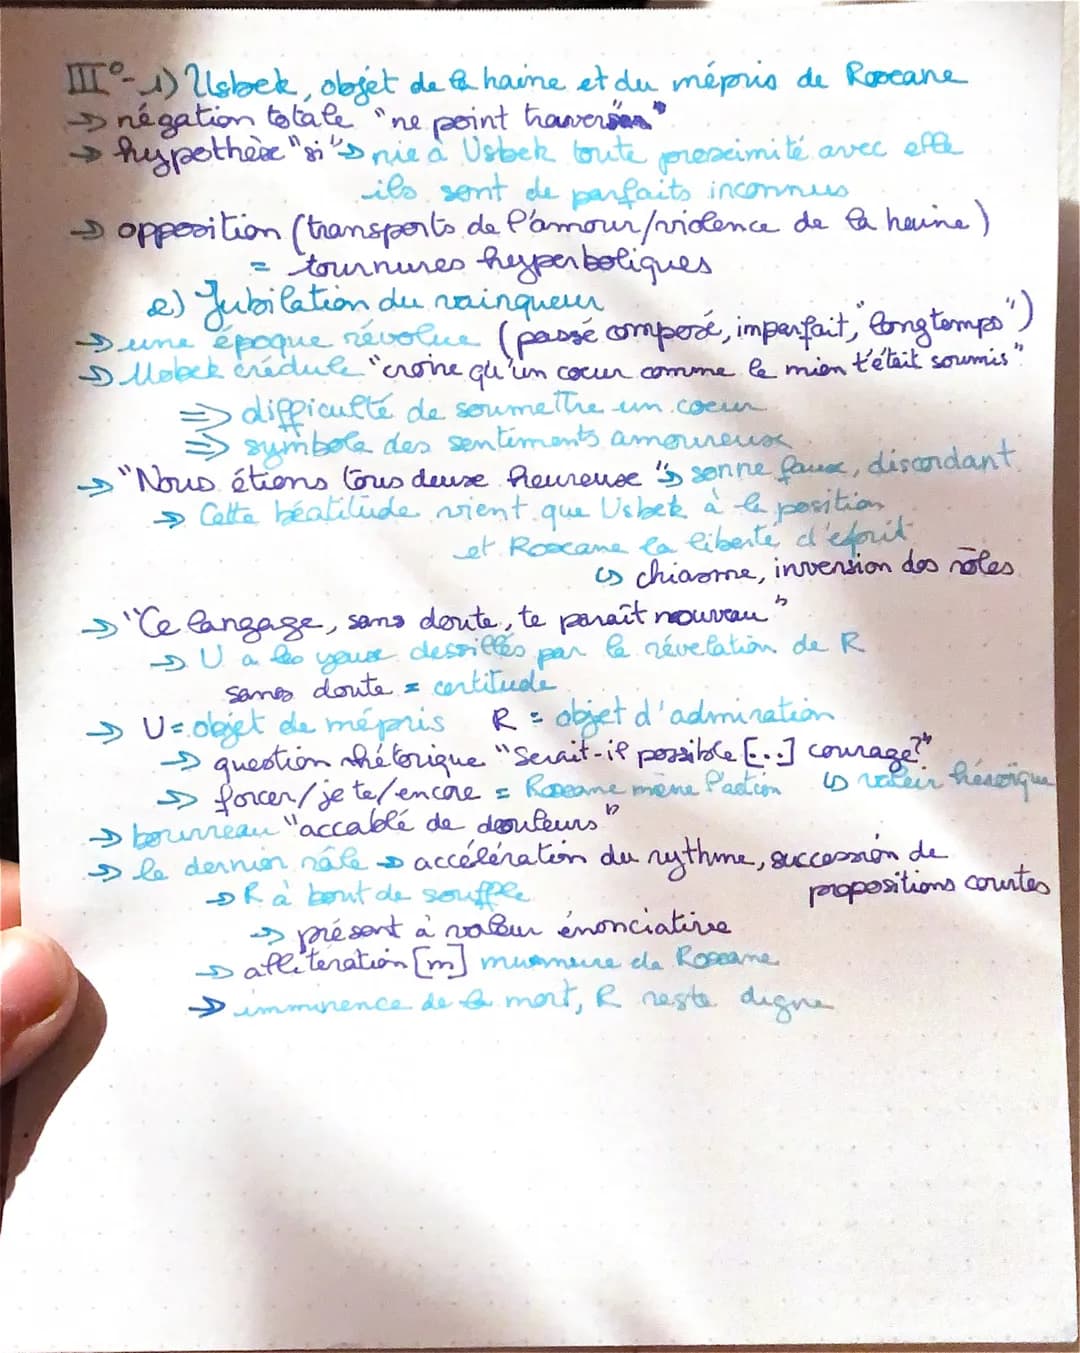 III°-1) Usbek, objet de la haine et du mépris de Roxane
→ négation totale "ne point"
→ hypothèse "si" → nie à Usbek toute proximité avec elle
ils sont de parfaits inconnus
→ opposition (transports de l'amour/violence de la haine)
= tournures hyperboliques
2) Jubilation du vainqueur
→ une époque révolue (passé composé, imparfait, "longtemps")
→ Usbek crédule "croire qu'un coeur comme le mien t'était soumis"
⇒ difficulté de soumettre un coeur
⇒ symbole des sentiments amoureux
→ "Nous étions tous deux heureux" → sonne faux, discordant
→ Cette béatitude vient que Usbek à la position
et Roxane la liberté d'esprit
↳ chiasme, inversion des rôles
→ "Ce langage, sans doute, te paraît nouveau"
→ U a les yeux dessillés par la révélation de R
sans doute = certitude
→ U = objet de mépris R = objet d'admiration
→ question rhétorique "Serait-il possible [...] courage?"
→ forcer/je te/encore = Roxane mène l'action ↳ valeur héroïque
→ bourreau "accablé de douleurs"
→ le dernier râle → accélération du rythme, succession de
propositions courtes
→ R à bout de souffle
→ présent à valeur énonciative
→ allitération [m] murmure de Roxane
→ imminence de la mort, R reste digne